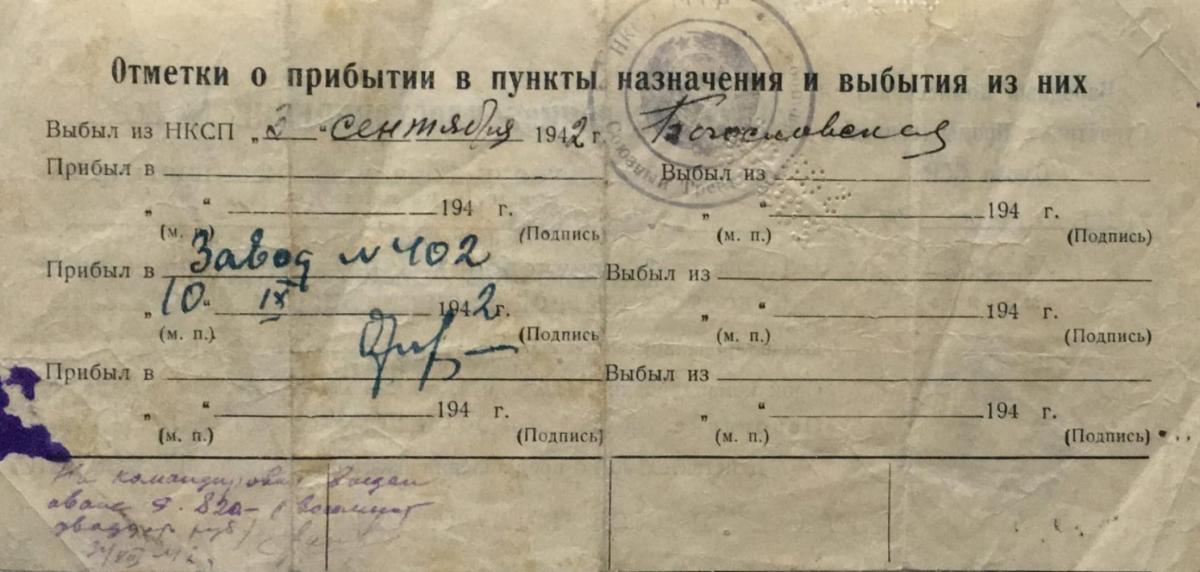 Отметки о прибытии в пункты назначения и выбытия из них
Выбыл из НКСП „2“ сентября 1942 г. Богословская
Прибыл в Выбыл из
„ “ 194 г. „ “ 194 г.
(м. п.) (Подпись) (м. п.) (Подпись)
Прибыл в Завод №402 Выбыл из
„10“ IX 1942 г. „ “ 194 г.
(м. п.) (Подпись) (м. п.) (Подпись)
Прибыл в Выбыл из
„ “ 194 г. „ “ 194 г.
(м. п.) (Подпись) (м. п.) (Подпись)
На командировку выдан
аванс 820-
руб)
НКСП
Союзный